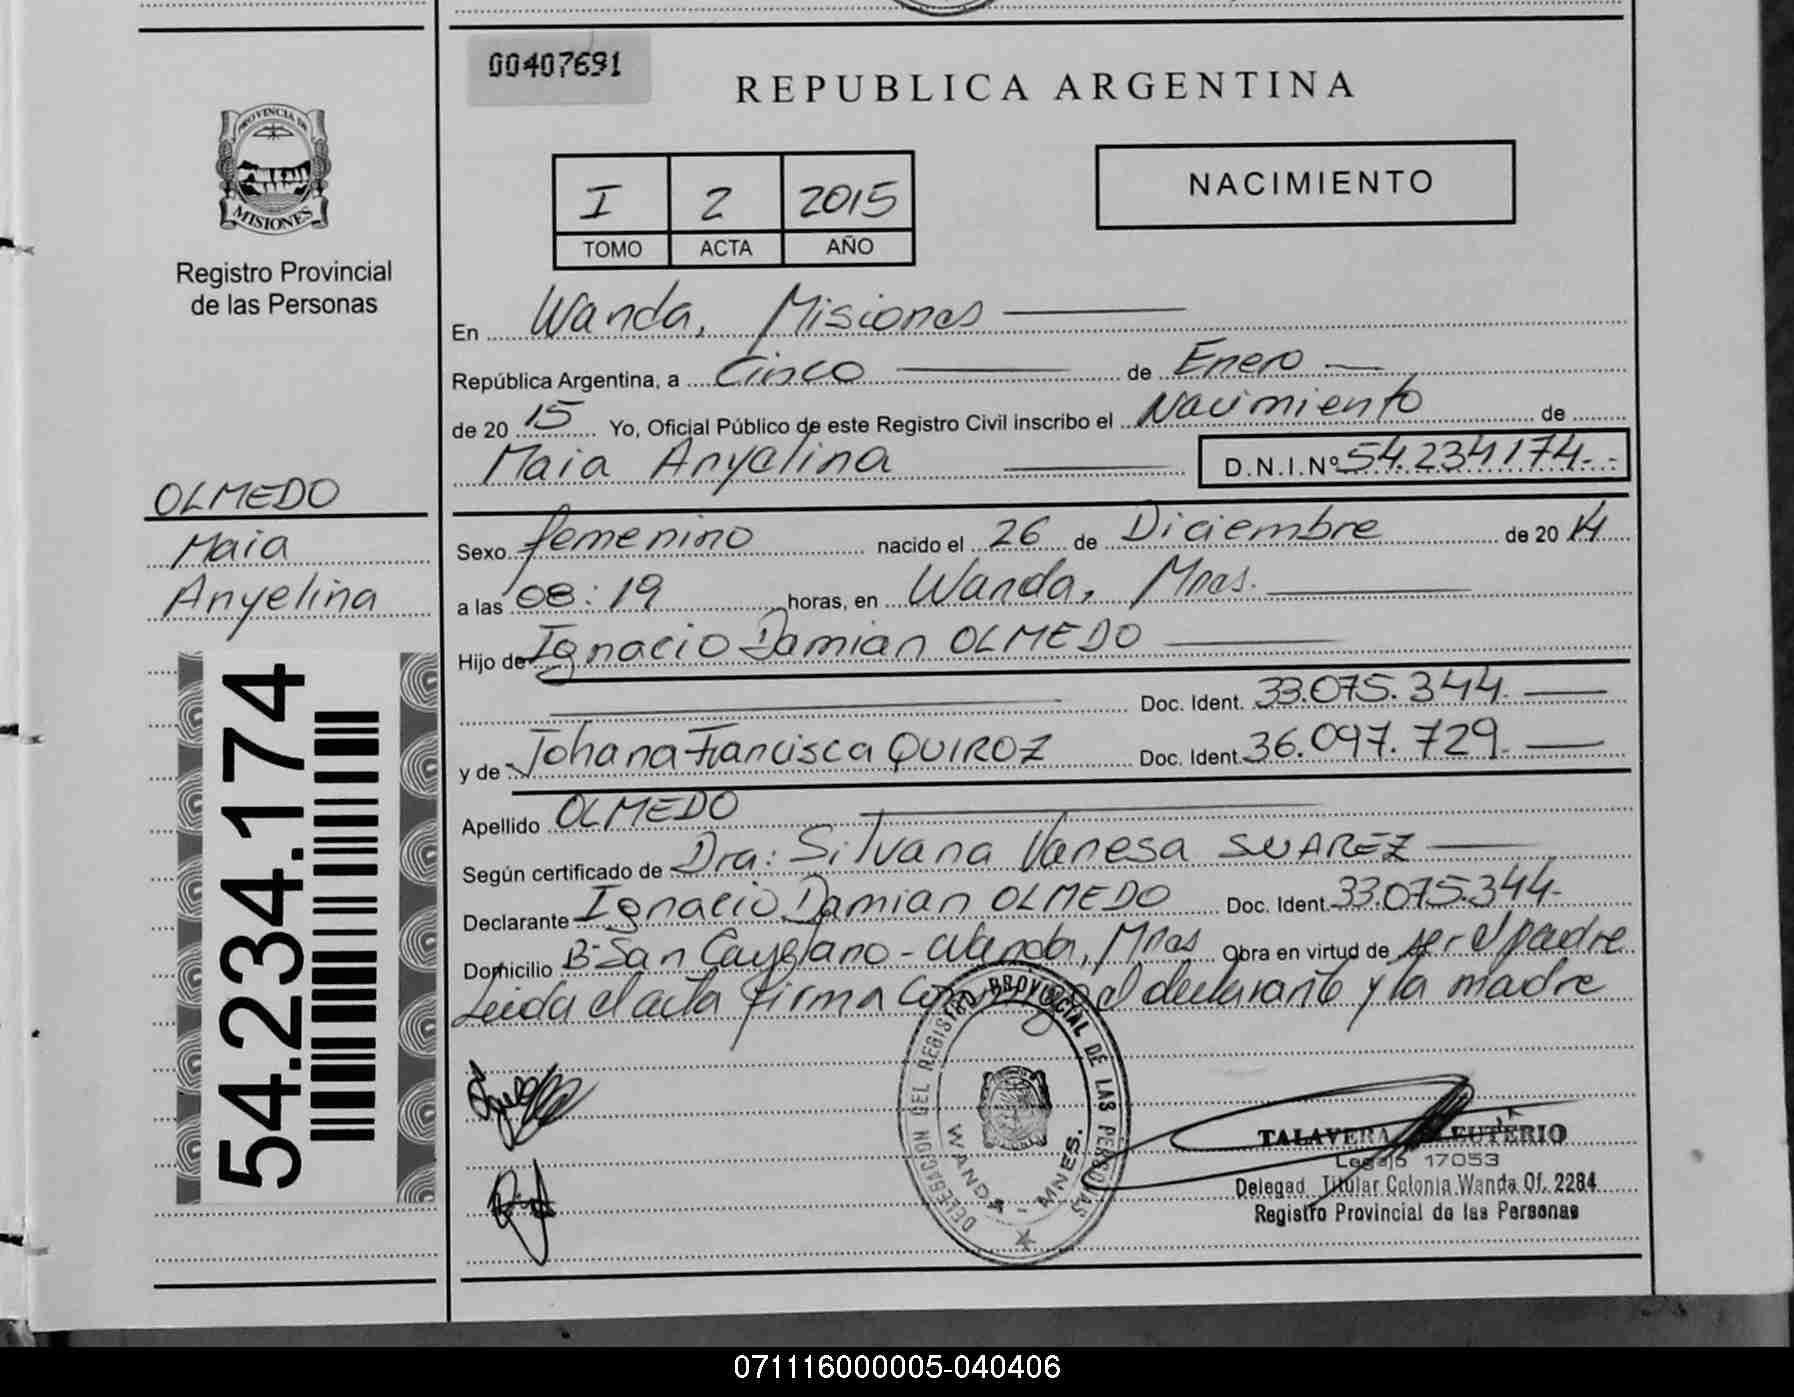 00407691
REPUBLICA ARGENTINA
PROVINCIA DE
MISIONES
Registro Provincial
de las Personas
I 2 2015
TOMO ACTA AÑO
NACIMIENTO
En Wanda, Misiones
República Argentina, a Cinco de Enero
de 20 15 Yo, Oficial Público de este Registro Civil inscribo el Nacimiento de
Maia Anyelina D.N.I.Nº 54.234174
OLMEDO
Maia
Anyelina
54.234.174
Sexo femenino nacido el 26 de Diciembre de 20 14
a las 08:19 horas, en Wanda, Mnes.
Hijo de Ignacio Damian OLMEDO
Doc. Ident. 33.075.344
y de Johana Francisca QUIROZ Doc. Ident. 36.097.729
Apellido OLMEDO
Según certificado de Dra: Silvana Vanesa SUAREZ
Declarante Ignacio Damian OLMEDO Doc. Ident. 33.075.344
Domicilio B-San Cayetano - Wanda, Mnes Obra en virtud de ser el padre
Leida el acta firma conmigo el declarante y la madre
DELEGACION DEL REGISTRO PROVINCIAL DE LAS PERSONAS
WANDA - MNES.
TALAVERA ELEUTERIO
Legajo 17053
Delegad. Titular Colonia Wanda Of. 2284
Registro Provincial de las Personas
071116000005-040406